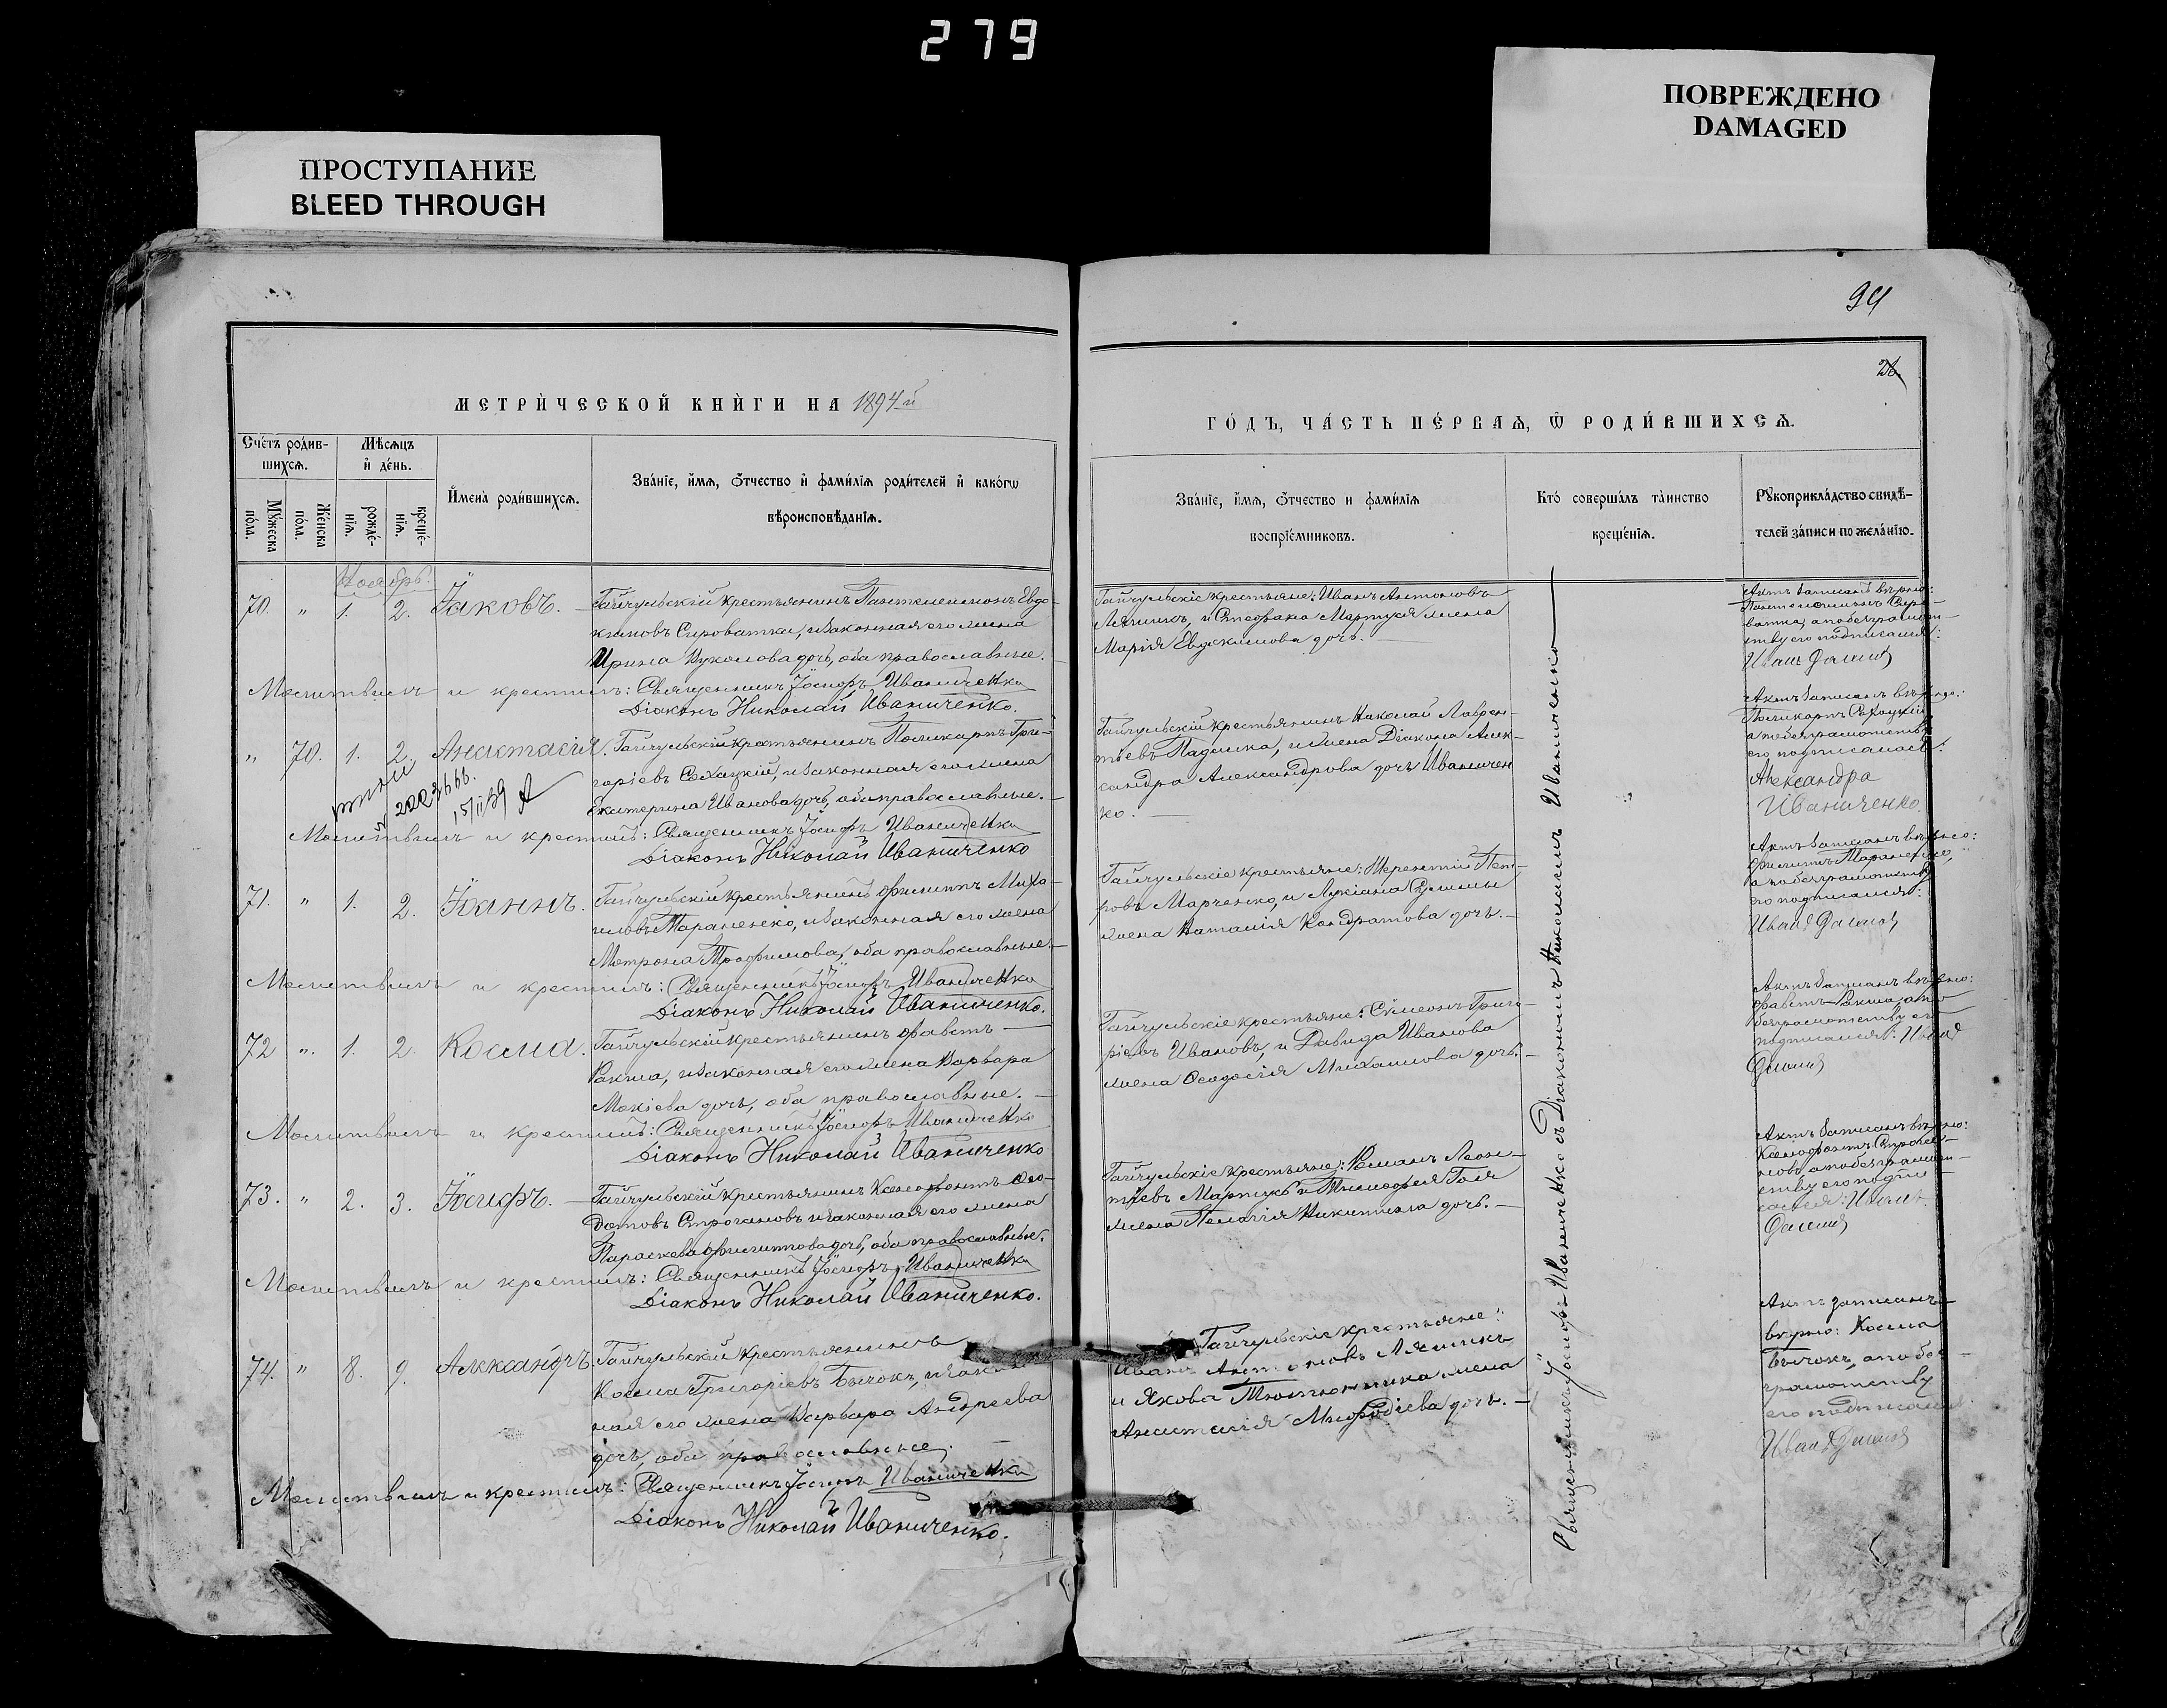 279
ПРОСТУПАНИЕ
BLEED THROUGH
ПОВРЕЖДЕНО
DAMAGED
94
26.
МЕТРИ́ЧЕСКОЙ КНИ́ГИ НА 1894й
ГО́ДЪ, ЧА́СТЬ ПЕ́РВАѦ, Ѿ РОДИ́ВШИХСѦ.
Сче́тъ роди́в-
шихсѧ.
Мѣ́сѧцъ
и҆ де́нь.
Му́жеска
по́ла.
Же́нска
по́ла.
рожде́-
нїѧ.
креще́-
нїѧ.
И҆мена̀ роди́вшихсѧ.
Зва́нїе, и҆́мѧ, ѻ҆́тчество и҆ фами́лїѧ роди́телей и҆ како́гѡ
вѣроисповѣ́данїѧ.
Зва́нїе, и҆́мѧ, ѻ҆́тчество и фами́лїѧ
воспрїе́мниковъ.
Кто́ соверша́лъ та́инство
креще́нїѧ.
Рꙋкоприкла́дство свидѣ́-
телей за́писи по жела́нїю.
Ноябрь.
70. " 1. 2. Іаковъ.
Гайчульскій крестьянинъ Пантелеимонъ Евдо-
кимовъ Сироватка, и законная его жена
Ирина Вуколова дочь, оба православные.
Молитвилъ и крестилъ: Священникъ Іосифъ Иваниченко
Діаконъ Николай Иваниченко.
Гайчульскіе крестьяне: Иванъ Антоновъ
Ляшикъ, и Стефана Мартуся жена
Марія Евдокимова дочь.
Актъ записанъ вѣрно:
Пантелеимонъ Сиро-
ватка, а по безграмот-
ству его подписался:
" 70. 1. 2. Анастасія.
Гайчульскій крестьянинъ Поликарпъ Гри-
горіевъ Сахацкій, и законная его жена
Екатерина Иванова дочь, оба православные.
15/II 39
Молитвилъ и крестилъ: Священникъ Іосифъ Иваниченко
Діаконъ Николай Иваниченко
Гайчульскій крестьянинъ Николай Лаврен-
тьевъ Падалка, и жена Діакона Алек-
сандра Александрова дочь Иваничен
ко.
Актъ записанъ вѣрно:
Поликарпъ Сахацкій
а по безграмотству
его подписалась:
Александра
Иваниченко
71. " 1. 2. Іоаннъ.
Гайчульскій крестьянинъ Филиппъ Миха-
иловъ Тараненко, и законная его жена
Матрона Трофимова, оба православные.
Молитвилъ и крестилъ: Священникъ Іосифъ Иваниченко
Діаконъ Николай Иваниченко.
Гайчульскіе крестьяне: Терентій Пет-
ровъ Марченко, и Лукіана
жена Наталія Кондратова дочь.
Актъ записанъ вѣрно:
Филиппъ Тараненко,
а по безграмотству
его подписался:
72 " 1. 2. Косма.
Гайчульскій крестьянинъ Фавстъ
Ракша, и законная его жена Варвара
Мокіева дочь, оба православные.
Молитвилъ и крестилъ: Священникъ Іосифъ Иваниченко
Діаконъ Николай Иваниченко
Гайчульскіе крестьяне: Симеонъ Григо-
ріевъ Ивановъ, и Давида Иванова
жена Ѳеодосія Михаилова дочь.
Актъ записанъ вѣрно:
Фавстъ Ракша, а по
безграмотству его
подписался: Иванъ
73. " 2. 3. Іосифъ.
Гайчульскій крестьянинъ Ксенофонтъ Ѳео-
дотовъ Строгановъ и законная его жена
Параскева Филиппова дочь, оба православные.
Молитвилъ и крестилъ: Священникъ Іосифъ Иваниченко
Діаконъ Николай Иваниченко.
Гайчульскіе крестьяне: Романъ Леон-
тіевъ Мартусь и Тимофея Голя
жена Пелагія Никитина дочь.
Актъ записанъ вѣрно:
Ксенофонтъ Строга-
новъ, а по безграмот-
ству его подпи
сался: Иванъ
74. " 8. 9. Александръ.
Гайчульскій крестьянинъ
Косма Григоріевъ Бычокъ, и закон
ная его жена Варвара Андреева
дочь, оба православные.
Молитвилъ и крестилъ: Священникъ Іосифъ Иваниченко
Діаконъ Николай Иваниченко.
Гайчульскіе крестьяне:
Иванъ Антоновъ Ляшикъ
и Якова Тютюнника жена
Анастасія Мефодіева дочь.
Актъ записанъ
вѣрно: Косма
Бычокъ, а по без-
грамотству
его подписался
Священникъ Іосифъ Иваниченко съ Діакономъ Николаемъ Иваниченко